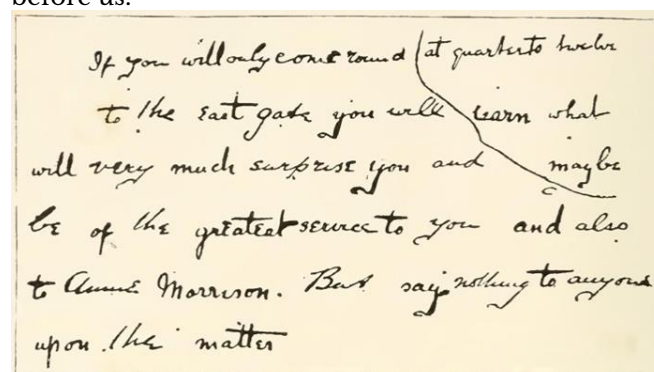 before us.
If you will only come round at quarter to twelve
to the east gate you will learn what
will very much surprise you and maybe
be of the greatest service to you and also
to Annie Morrison. But say nothing to anyone
upon the matter